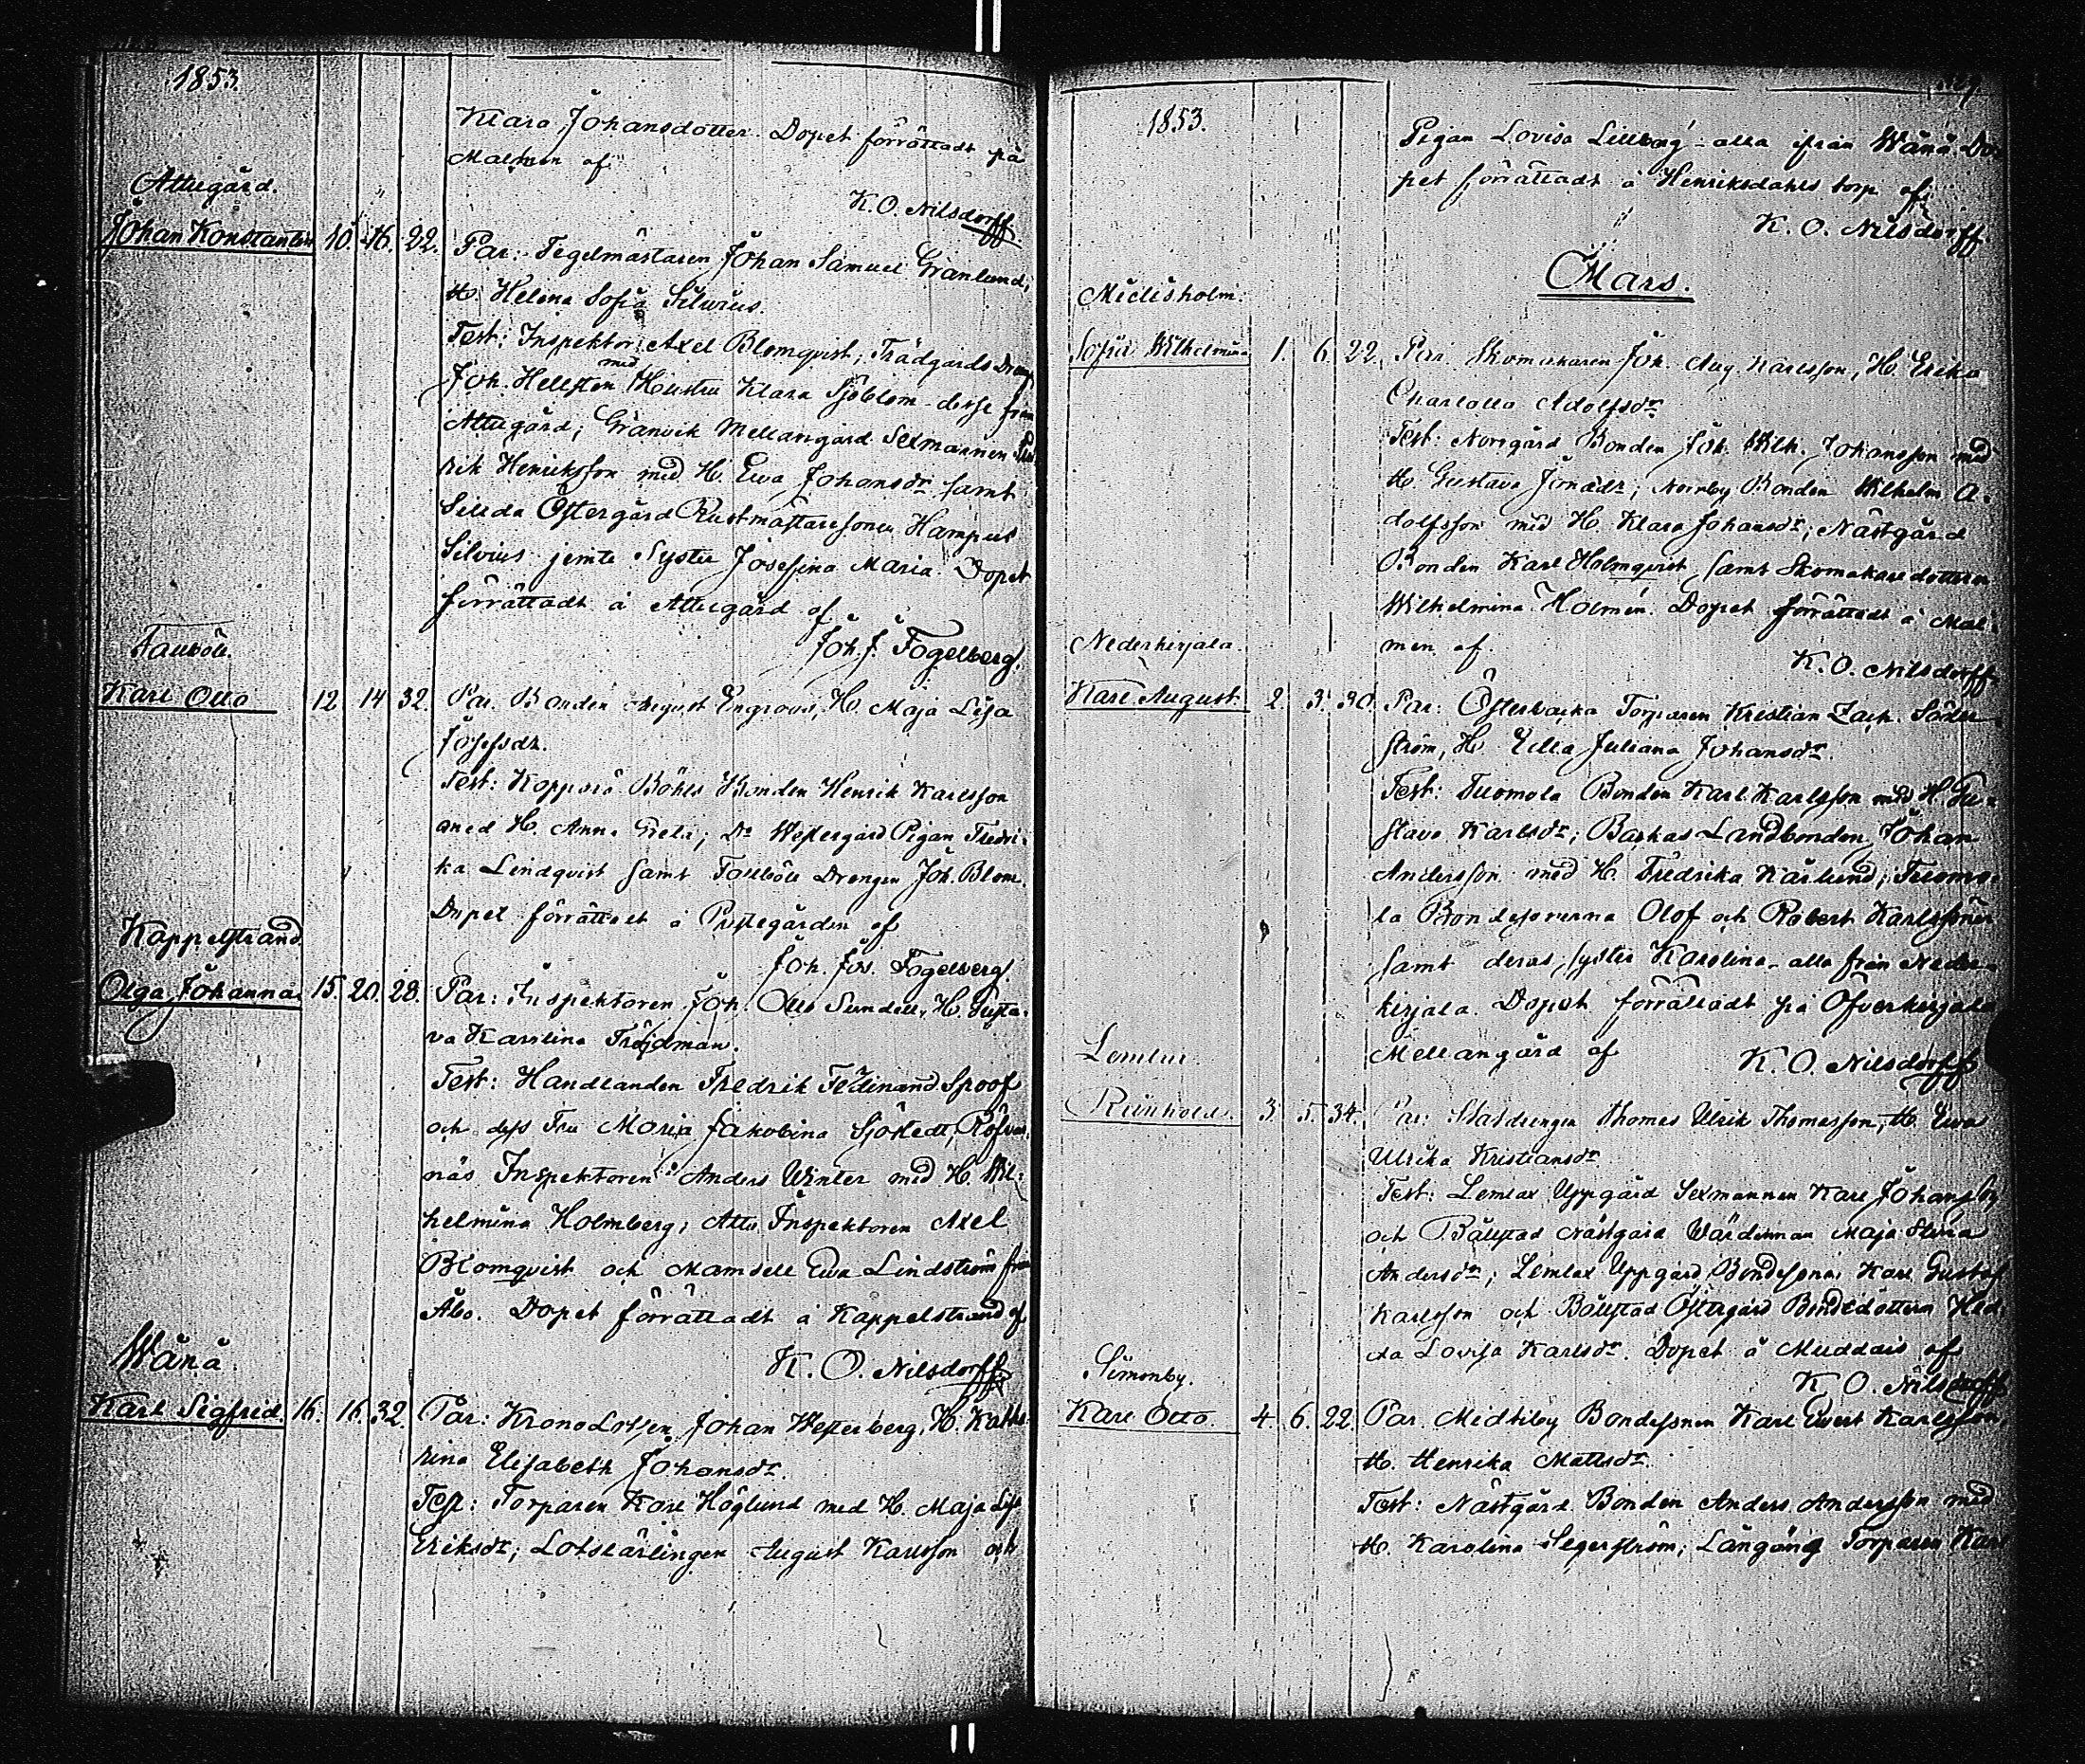 1853.
Klara Johansdotter. Dopet förrättadt på
Malmen af
K. O. Nilsdorff
Attugård.
Johan Konstantin 10. 16. 22.
Par: Tegelmästaren Johan Samuel Granlund,
H. Helena Sofia Silvius.
Test: Inspektor Axel Blomqvist, Trädgårds Dreng
Joh. Hellsten med Hustru Klara Sjöblom - desse från
Attugård; Gränvik Mellangård Sexmannen
rik Henriksson med H. Ewa Johansdr samt
Östergård Rustmästaresonen Hampus
Silvius jemte Syster Josefina Maria. Dopet
förrättadt å Attugård af
Joh. J. Fogelberg.
Karl Otto 12 14 32.
Par. Bonden August Engroos, H. Maja Lisa
Josefsdr.
Test: Kopparö Böhls Bonden Henrik Karlsson
med H. Anna Greta; Do Westergård Pigan Fredri-
ka Lindqvist samt Drengen Joh. Blom.
Dopet förrättadt å Prestegården af
Joh. Jos. Fogelberg
Kappelstrand
Olga Johanna. 15. 20. 28.
Par: Inspektoren Joh. Otto Sundell, H. Gusta-
va Karolina Fröjdman.
Test: Handlanden Fredrik Ferdinand Spoof
och dess Fru Maria Jakobina Sjöstedt, Röfvar-
näs Inspektoren Anders Winter med H. Wil-
helmina Holmberg; Attu Inspektoren Axel
Blomqvist och Mamsell Ewa Lindström från
Åbo. Dopet förrättadt å Kappelstrand af
K. O. Nilsdorff
Wånå.
Karl Sigfred. 16. 16. 32.
Par: KronoLotsen Johan Westerberg, H. Katha-
rina Elisabeth Johansdr.
Test: Torparen Karl Höglund med H. Maja Lisa
Eriksdr; Lotslärlingen August Karlsson och
1853.
Pigan Lovisa Lillberg - alla ifrån Wånå. Do-
pet förrättadt å Henriksdahls torp af
K. O. Nilsdorff
Mars.
Sofia Wilhelmina 1. 6. 22.
Par. Skomakaren Joh. Aug. Karlsson, H. Erika
Charlotta Adolfsdr
Test: Norrgård Bonden Joh. Wilh. Johansson med
H. Gustava ; Norrby Bonden Wilhelm A-
dolfsson med H. Klara Johansdr; Nästgård
Bonden Karl Holmqvist samt Skomakaredottren
Wilhelmina Holmén. Dopet förrättadt å Mal-
men af
K. O. Nilsdorff
Nederkirjala.
Karl August. 2. 3. 30.
Par: Österbacka Torparen Kristian Zach. Söder-
ström, H. Ulla Juliana Johansdr.
Test: Tuomola Bonden Karl Karlsson med H. Gu-
stava Karlsdr; Backas Landbonden Johan
Andersson med H. Fredrika Karlund; Tuomo-
la Bondesönerna Olof och Robert Karlssöner
samt deras syster Karolina - alla från Neder-
kirjala. Dopet förrättadt på Öfverkirjala
Mellangård af
K. O. Nilsdorff
Lemlax.
Reinhold. 3. 5. 34.
Par: Stalldrengen Thomas Ulrik Thomasson, H. Ewa
Ulrika Kristiansdr.
Test: Lemlax Uppgård Sexmannen Karl Johansson
och Bållstad Nästgård Wärdinnan Maja Stina
Andersdr; Lemlax Uppgård Bondesonen Karl Gustaf
Karlsson och Bållstad Östergård Bondedottern Hed-
da Lovisa Karlsdr. Dopet å Muddais af
K. O. Nilsdorff
Simonby.
Karl Otto. 4. 6. 22.
Par. Midtiby Bondesonen Karl Ewert Karlsson,
H. Henrika Mattsdr.
Test: Nästgård Bonden Anders Andersson med
H. Karolina Segerström; Långäng Torparen Karl